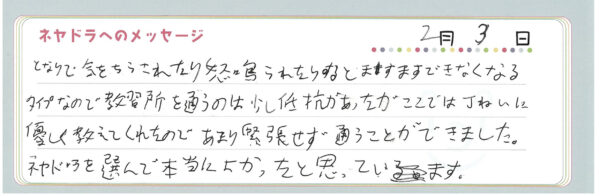 ネヤドラへのメッセージ 2月3日
となりで気をちらされたり怒鳴られたりするとますますできなくなる
タイプなので教習所を通うのは少し抵抗があったがここではていねいに
優しく教えてくれたので あまり緊張せず通うことができました。
ネヤドラを選んで本当によかったと思っています。